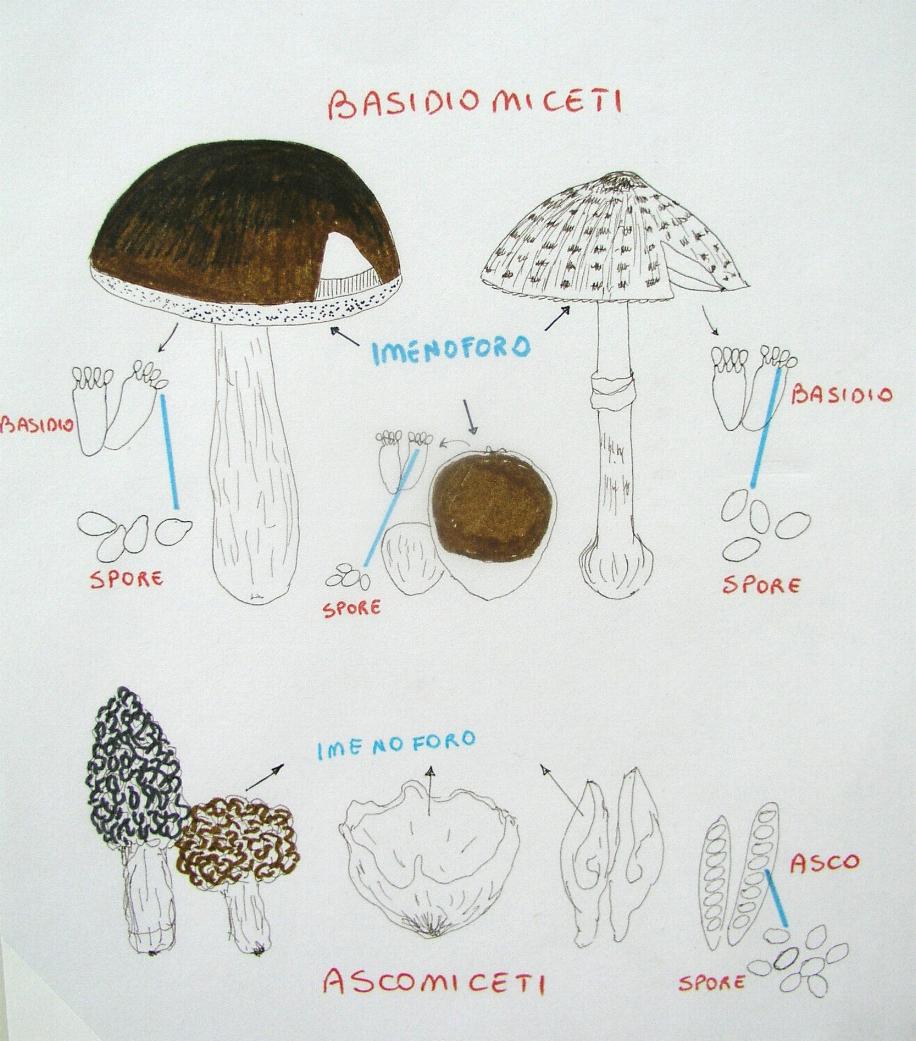 BASIDIOMICETI
IMENOFORO
BASIDIO
BASIDIO
SPORE
SPORE
SPORE
IMENOFORO
ASCO
SPORE
ASCOMICETI